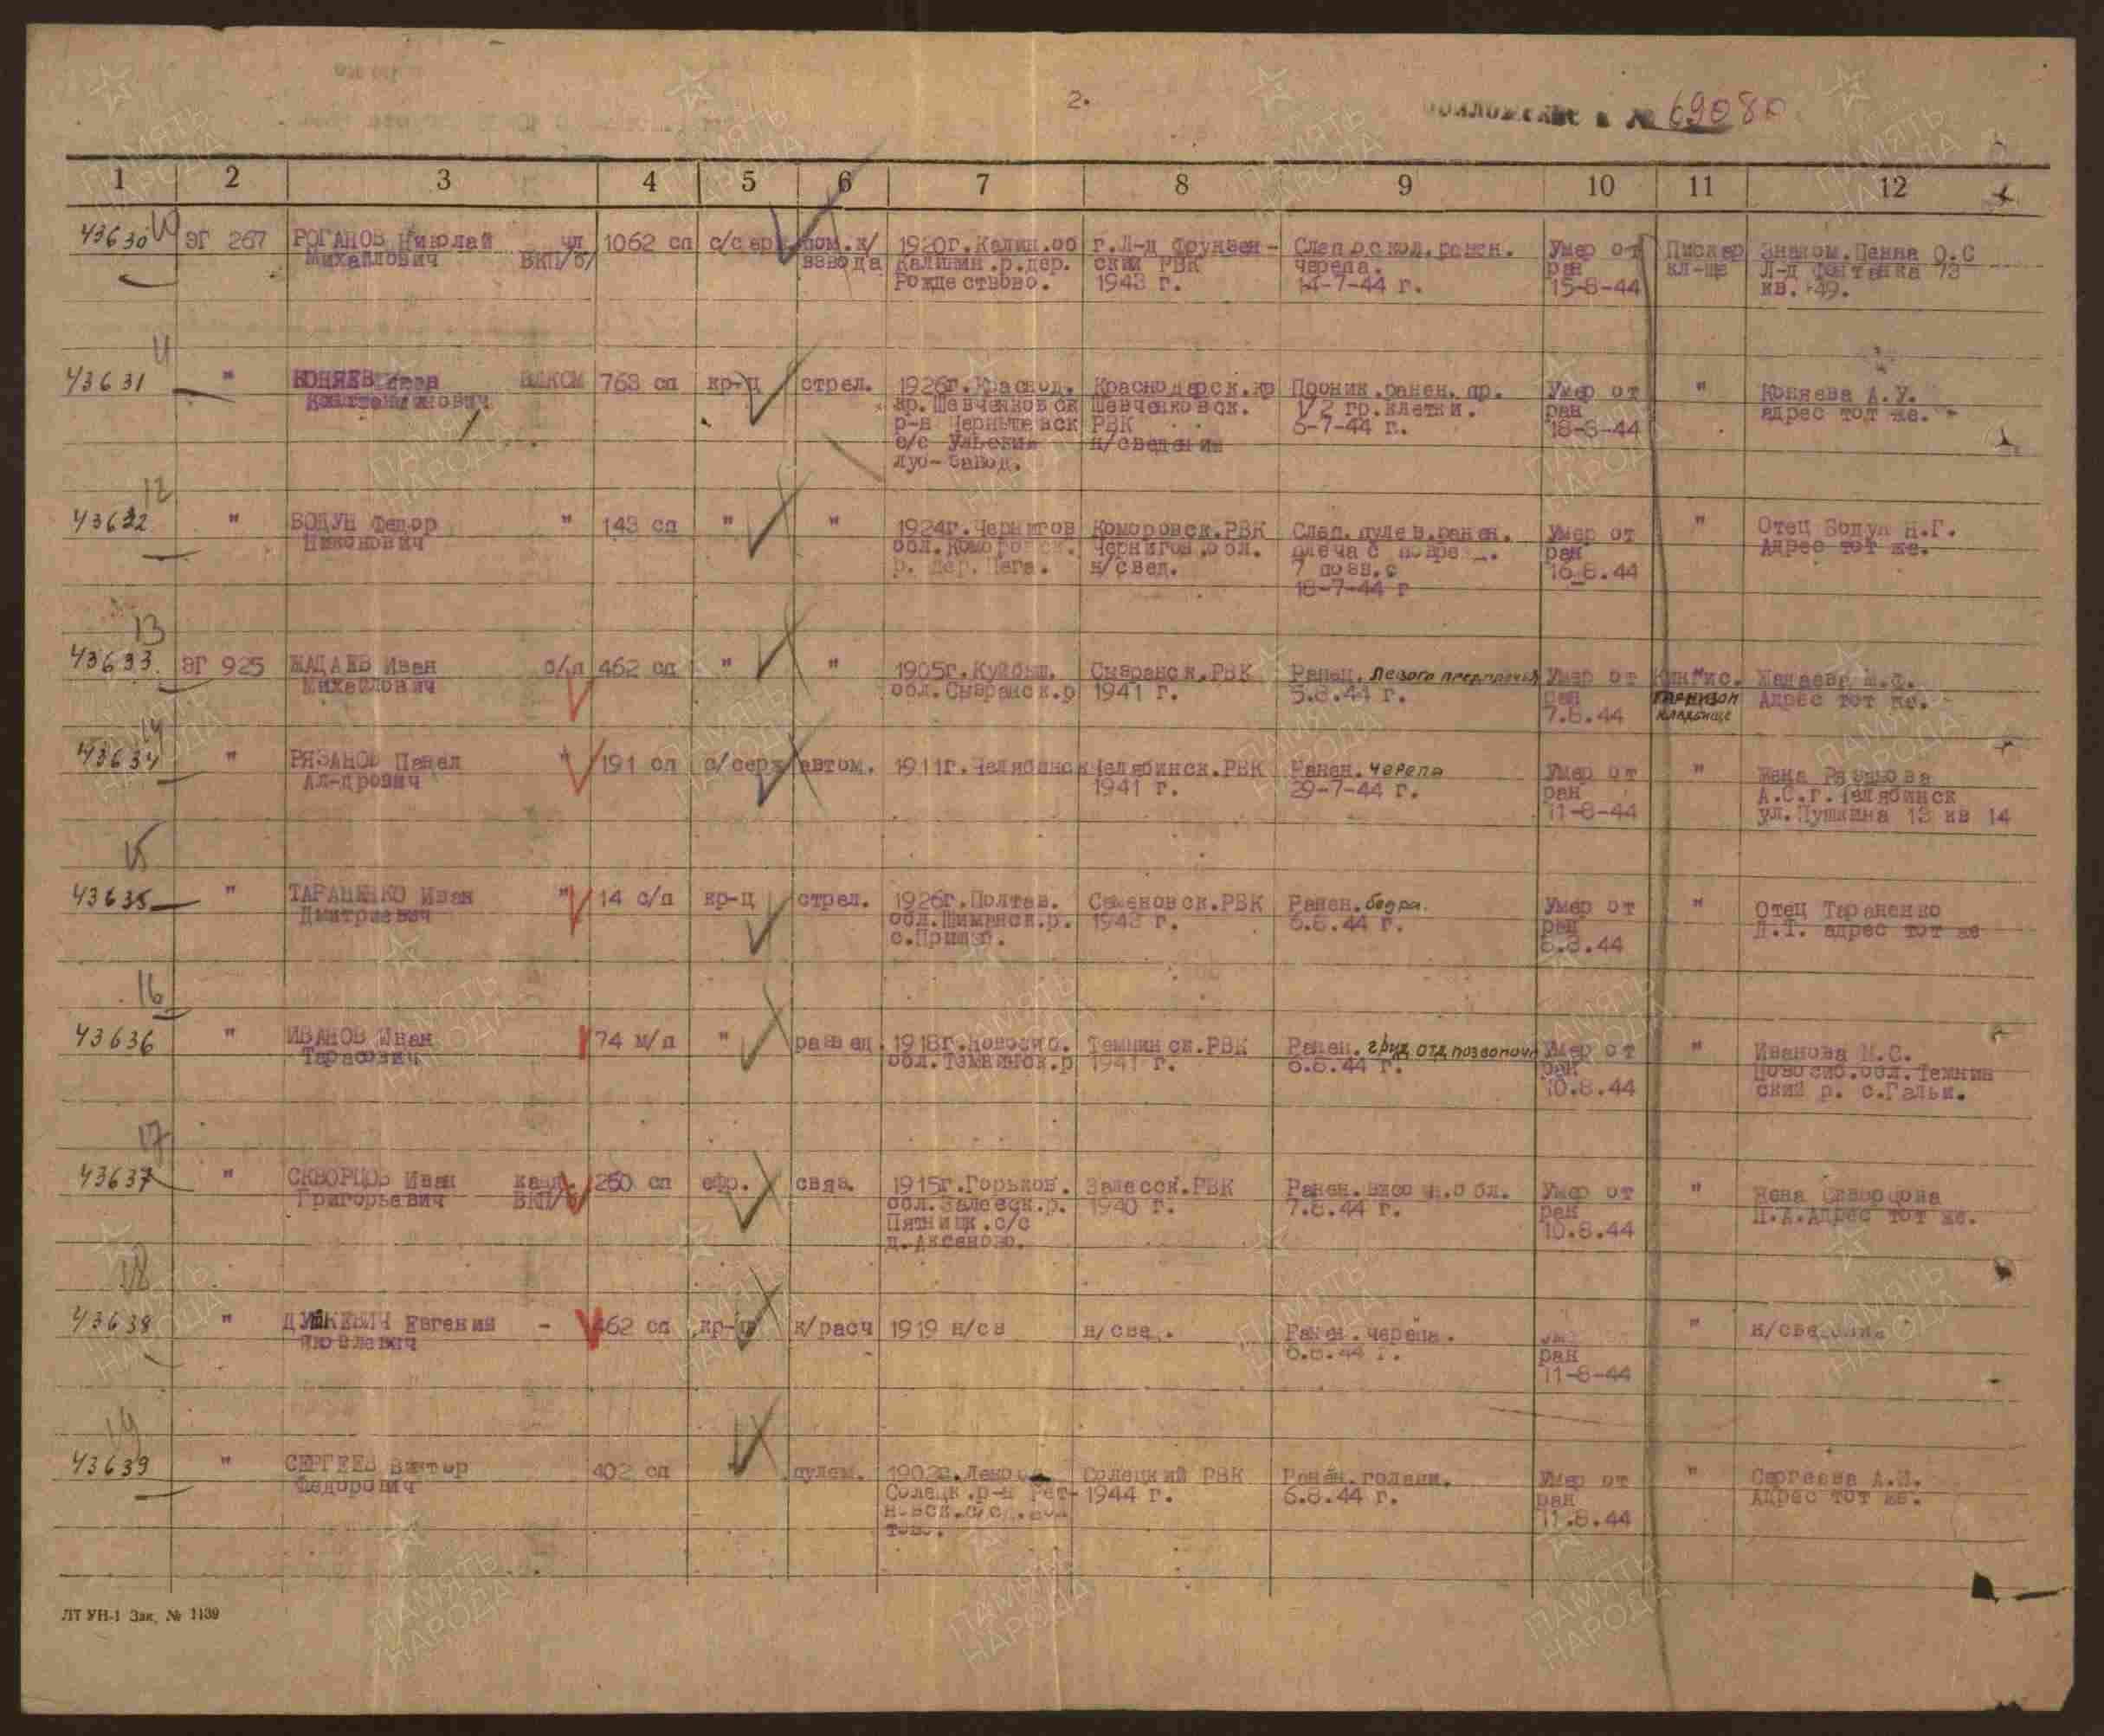 2.
69080
1 2 3 4 5 6 7 8 9 10 11 12
10
43630 ЭГ 267 РОГАНОВ Николай чл 1062 сп с/серж пом.к/ 1920г.Калин.об г.Л-д Фрунзен- Слеп.оскол.ранен. Умер от Пискар Знаком.Панна О.С
Михайлович ВКП/б/ взвода Калинин.р.дер. ский РВК черепа. ран кл-ще Л-д Фонтанка 73
Рождествово. 1943 г. 14-7-44 г. 15-8-44 кв. 49.
11
43631 " КОНЯЕВ ВЛКСМ 763 сп кр-ц стрел. 1926г.Краснод. Краснодарск.кр Проник.ранен.пр. Умер от " Коняева А.У.
Константинович кр. Шевченковск Шевченковск. 1/2 гр.клетки. ран адрес тот же.
р-н Чернышевск РВК 6-7-44 г. 18-8-44
с/с Ульский н/сведений
луб-завод.
12
43632 " БОДУН Федор " 143 сп " " 1924г.Чернигов Коморовск.РВК Слеп.пулев.ранен. Умер от " Отец Бодун Н.Г.
Никонович обл. Чернигов.обл. плеча с ран Адрес тот же.
р. дер. н/свед. 7 16.8.44
18-7-44 г
13
43633 ЭГ 925 ЖАДАЕВ Иван б/п 462 сп " " 1905г.Куйбыш. Сызранск.РВК Ранен. левого предплечья Умер от Кингис. Жадаева М.Ф.
Михайлович обл.Сызранск.р 1941 г. 5.8.44 г. ран гарнизон Адрес тот же.
7.8.44 кладбище
14
43634 " РЯЗАНОВ Павел " 191 сп с/серж автом. 1911г.Челябинск Челябинск.РВК Ранен. черепа Умер от " Жена Рязанова
Ал-дрович 1941 г. 29-7-44 г. ран А.С.г.Челябинск
11-8-44 ул.Пушкина 13 кв 14
15
43635 " ТАРАНЕНКО Иван " 14 с/п кр-ц стрел. 1926г.Полтав. Семеновск.РВК Ранен. бедра. Умер от " Отец Тараненко
Дмитриевич обл. 1943 г. 6.8.44 г. ран Д.Т. адрес тот же
8.8.44
16
43636 " ИВАНОВ Иван 74 м/п " развед. 1918г.Новосиб. РВК Ранен. груд отд позвоночн Умер от " Иванова М.С.
Тарасович обл. 1941 г. 6.8.44 г. ран Новосиб.обл.
10.8.44 ский р. с.
17
43637 " СКВОРЦОВ Иван канд. 260 сп ефр. связ. 1915г.Горьков. Залесск.РВК Ранен.височн.обл. Умер от " Жена Скворцова
Григорьевич ВКП/б/ обл.Залесск.р. 1940 г. 7.8.44 г. ран П.А.Адрес тот же.
Пятницк.с/с 10.8.44
д.Аксеново.
18
43638 " ДУШКЕВИЧ Евгений - 462 сп кр-ц к/расч 1919 н/св н/све. Ранен.черепа. " н/сведений
Яковлевич 6.8.44 г. ран
11-8-44
19
43639 " СЕРГЕЕВ Виктор 402 сп пулем. 1902г. Солецкий РВК Ранен.голени. Умер от " Сергеева А.И.
Федорович Солецк.р-н 1944 г. 6.8.44 г. ран Адрес тот же.
11.8.44
ЛТ УН-1 Зак. № 1139
ПАМЯТЬ НАРОДА